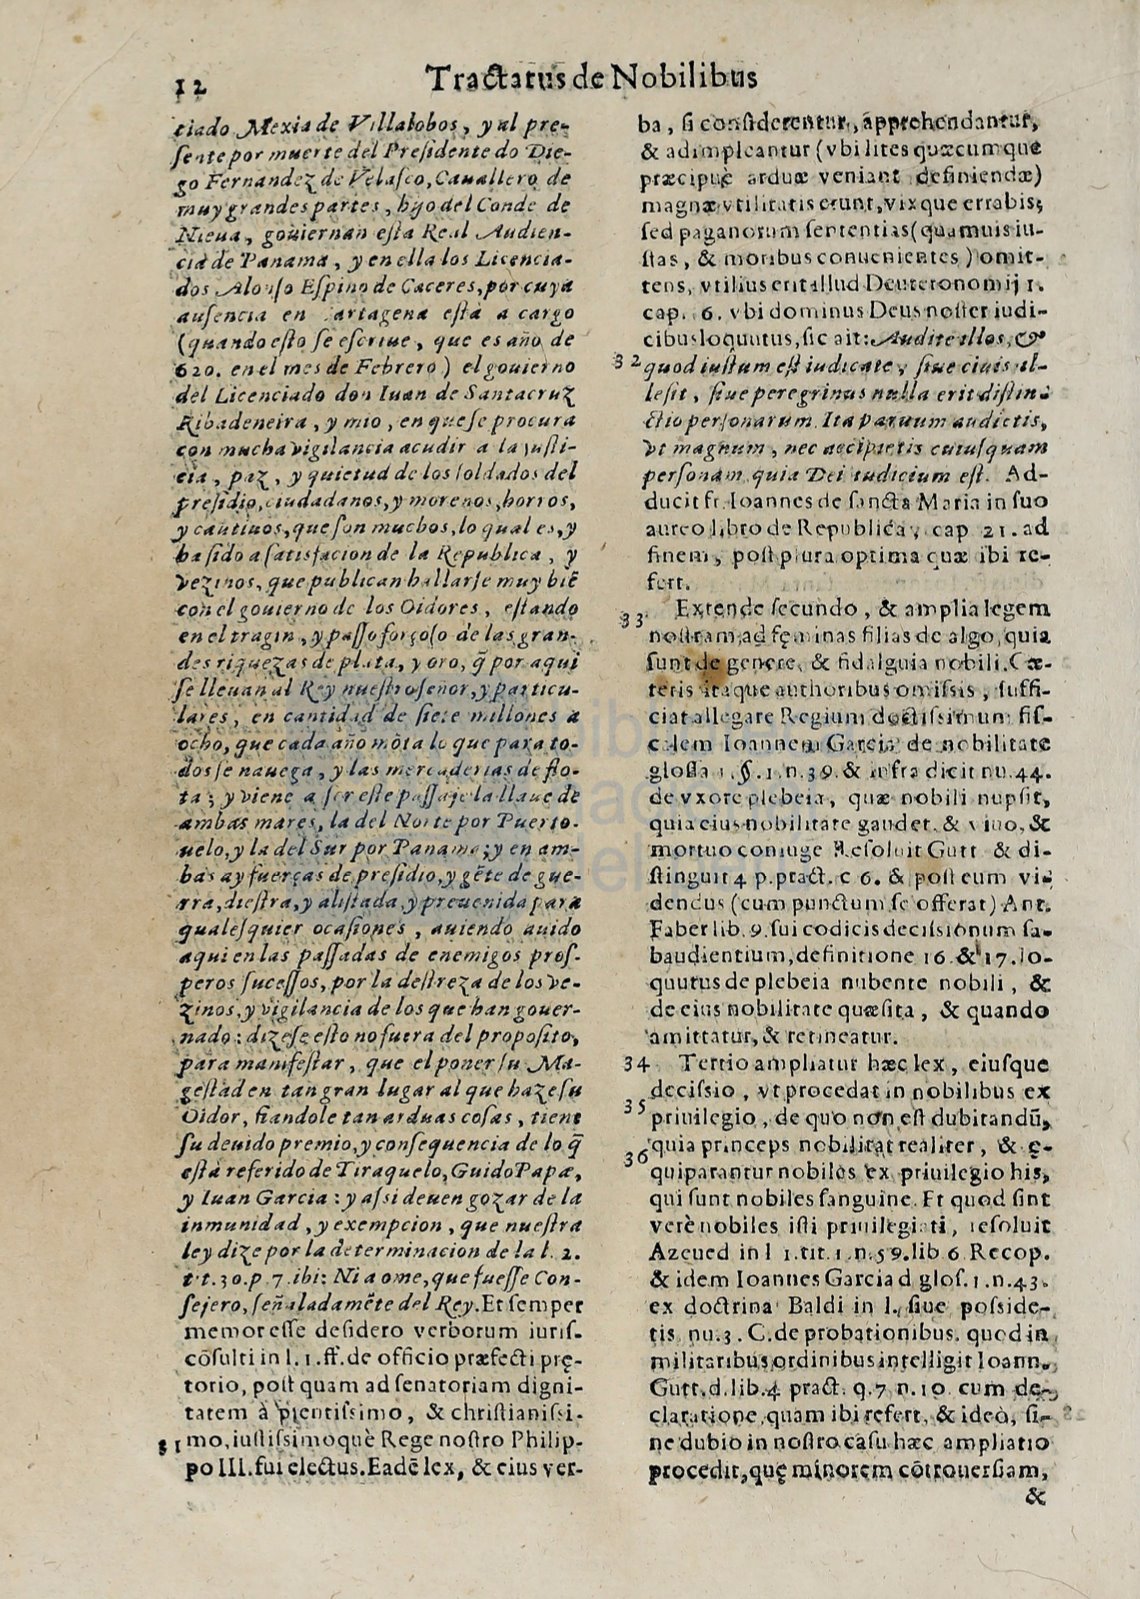 12
Tractatus de Nobilibus
ciado Mexia de Villalobos, y al pre-
sente por muerte del Presidente do Die-
go Fernandez de Velasco, Cauallero de
muy grandes partes, hijo del Conde de
Nieua, gouiernan esta Real Audien-
cia de Panama, y en ella los Licencia-
dos Alonso Espino de Caceres, por cuya
ausencia en Cartagena está a cargo
(quando esto se escriue, que es año de
620. en el mes de Febrero) el gouierno
del Licenciado don Iuan de Santacruz
Ribadeneira, y mio, en que se procura
con mucha vigilancia acudir a la justi-
cia, paz, y quietud de los soldados del
presidio, ciudadanos, y morenos, horros,
y cautiuos, que son muchos, lo qual es, y
ha sido a satisfacion de la Republica, y
vezinos, que publican hallarse muy biē
con el gouierno de los Oidores, estando
en el tragin, y passo forçoso de las gran-
des riquezas de plata, y oro, q̃ por aqui
se lleuan al Rey nuestro señor, y particu-
lares, en cantidad de siete millones a
ocho, que cada año mōta lo que para to-
dos se nauega, y las mercaderias de flo-
ta; y viene a ser este passaje la llaue de
ambas mares, la del Norte por Puerto-
uelo, y la del Sur por Panama; y en am-
bas ay fuerças de presidio, y gēte de gue-
rra, diestra, y alistada, y preuenida para
qualesquier ocasiones, auiendo auido
aqui en las passadas de enemigos pros-
peros sucessos, por la destreza de los ve-
zinos, y vigilancia de los que han gouer-
nado: dizese esto no fuera del proposito,
para manifestar, que el poner su Ma-
gestad en tan gran lugar al que haze su
Oidor, fiandole tan arduas cosas, tiene
su deuido premio, y consequencia de lo q̃
està referido de Tiraquelo, Guido Papæ,
y Iuan Garcia: y assi deuen gozar de la
inmunidad, y exempcion, que nuestra
ley dize por la determinacion de la l. 2.
tit. 30. p. 7. ibi: Ni a ome, que fuesse Con-
sejero, señaladamēte del Rey. Et semper
memor esse desidero verborum iuris-
cōsulti in l. 1. ff. de officio præfecti prę-
torio, post quam ad senatoriam digni-
tatem à pientissimo, & christianissi-
31 mo, iustissimoquè Rege nostro Philip-
po III. fui electus. Eadē lex, & eius ver-
ba, si considerentur, apprehendantur,
& adimpleantur (vbi lites quæcumque
præcipuè arduæ veniant definiendæ)
magnæ vtilitatis erunt, vixque errabis;
sed paganorum sententias (quamuis iu-
stas, & moribus conuenientes) omit-
tens, vtilius erit illud Deuteronomij 1.
cap. 6. vbi dominus Deus noster iudi-
cibus loquutus, sic ait: Audite illos, &
32 quod iustum est iudicate, siue ciuis il-
le sit, siue peregrinus nulla erit distin-
ctio personarum. Ita paruum audietis,
vt magnum, nec accipietis cuiusquam
personam, quia Dei iudicium est. Ad-
ducit fr. Ioannes de sancta Maria in suo
aureo libro de Republica, cap 21. ad
finem, post plura optima quæ ibi re-
fert.
33 Extende secundo, & amplia legem
nostram, ad fęminas filias de algo, quia
sunt de genere, & fidalguia nobili. Cæ-
teris itaque authoribus omissis, suffi-
ciat allegare Regium doctissimum fis-
calem Ioannem Garcia de nobilitate
glossa 1. §. 1. n. 39. & infra dicit nu. 44.
de vxore plebeia, quæ nobili nupsit,
quia eius nobilitate gaudet. & viuo, &
mortuo coniuge Resoluit Gutt & di-
stinguit 4 p. pract. c 6. & post eum vi-
dendus (cum punctum se offerat) Ant.
Faber lib. 9. sui codicis decissionum sa-
baudientium, definitione 16. & 17. lo-
quutus de plebeia nubente nobili, &
de eius nobilitate quæsita, & quando
amittatur, & retineatur.
34 Tertio ampliatur hæc lex, eiusque
decissio, vt procedat in nobilibus ex
35 priuilegio, de quo non est dubitandū,
quia princeps nobilitat realiter, & ę-
36 quiparantur nobiles ex priuilegio his,
qui sunt nobiles sanguine. Et quod sint
verè nobiles isti priuilegiati, resoluit
Azeued in l 1. tit. 1. n. 59. lib 6. Recop.
& idem Ioannes Garcia d glos. 1. n. 43.
ex doctrina Baldi in l. siue posside-
tis nu. 3. C. de probationibus. quod in
militaribus ordinibus intelligit Ioann.
Gutt. d. lib. 4 pract. q. 7 n. 10. cum de-
claratione, quam ibi refert, & ideò, si-
ne dubio in nostro casu hæc ampliatio
procedit, quę minorem cōtrouersiam,
&